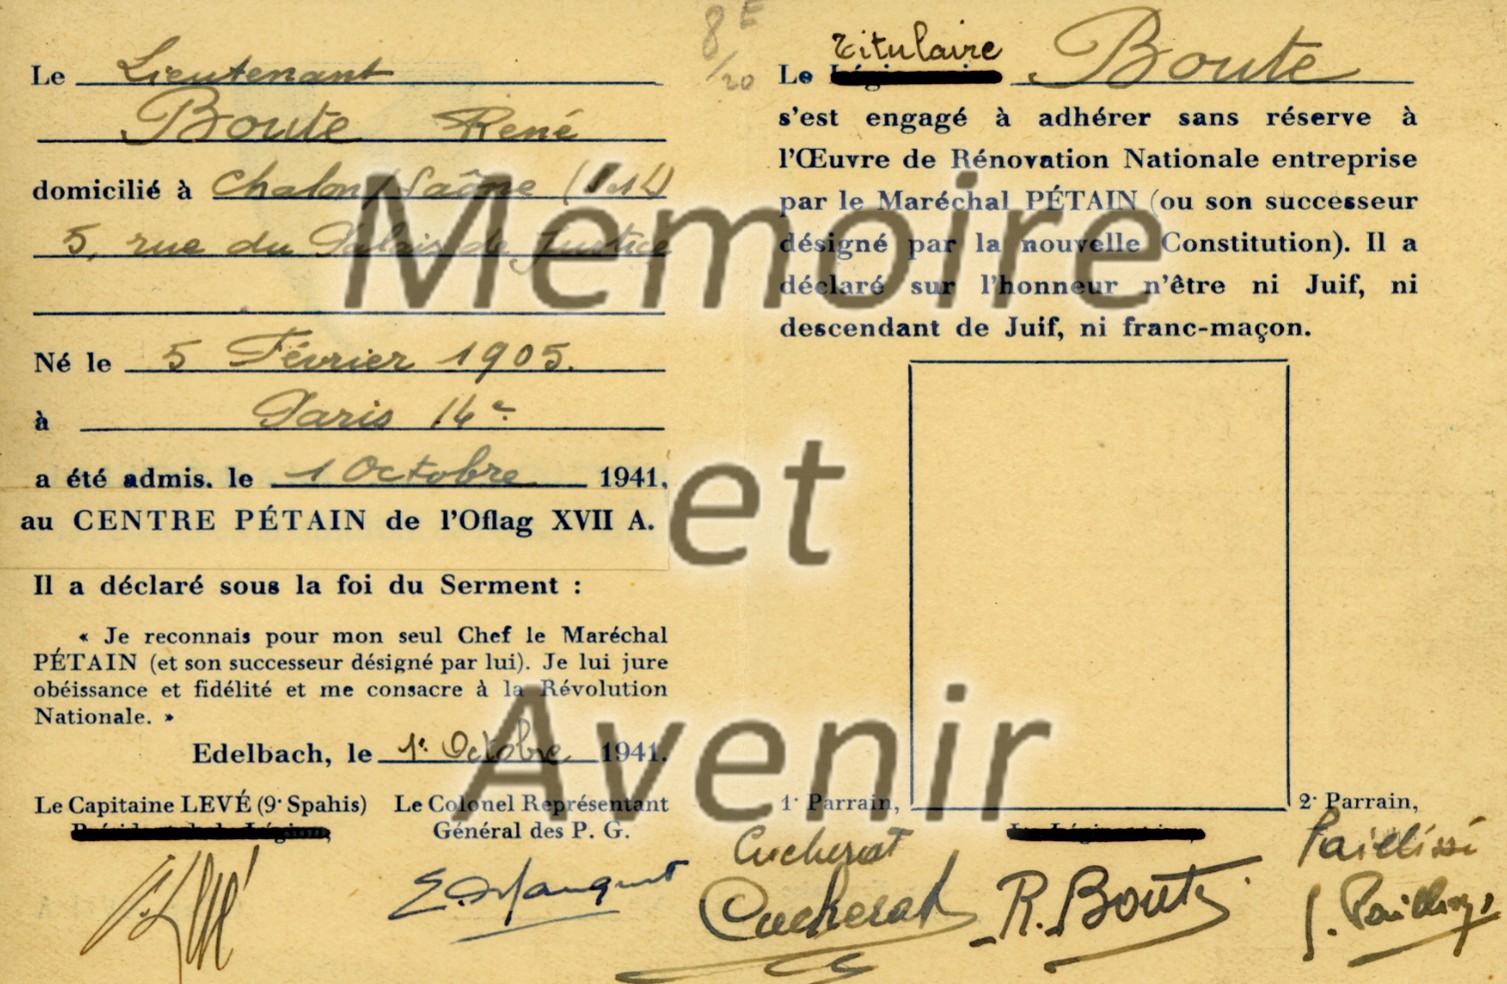 8E
/20
Le Lieutenant
Boute René
domicilié à Chalon s/ Saône (S.&L)
5, rue du Palais de Justice
Né le 5 Février 1905.
à Paris 14e
a été admis. le 1 Octobre 1941,
au CENTRE PÉTAIN de l'Oflag XVII A.
Il a déclaré sous la foi du Serment :
« Je reconnais pour mon seul Chef le Maréchal
PÉTAIN (et son successeur désigné par lui). Je lui jure
obéissance et fidélité et me consacre à la Révolution
Nationale. »
Edelbach, le 1er Octobre 1941.
Le Capitaine LEVÉ (9e Spahis)
Le Colonel Représentant
Général des P. G.
titulaire
Le Boute
s'est engagé à adhérer sans réserve à
l'Œuvre de Rénovation Nationale entreprise
par le Maréchal PÉTAIN (ou son successeur
désigné par la nouvelle Constitution). Il a
déclaré sur l'honneur n'être ni Juif, ni
descendant de Juif, ni franc-maçon.
1r Parrain,
Cucherat
Cucherat
R. Boute
2e Parrain,
Mémoire
et
Avenir